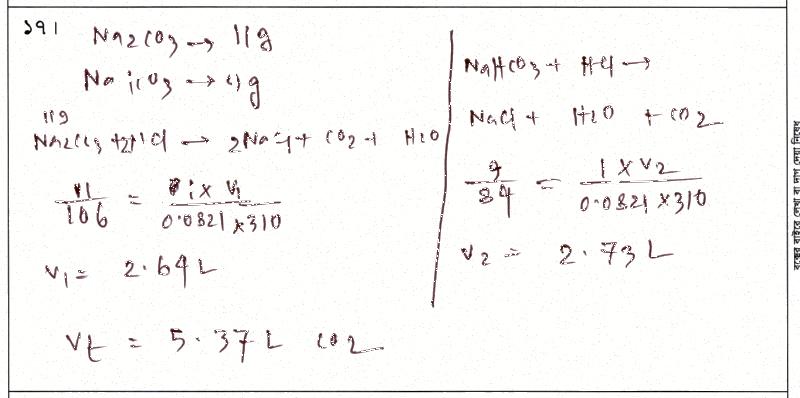 ১৭।
Na2CO3 → 11g
NaHCO3 → 9g
11g
Na2CO3 + 2HCl → 2NaCl + CO2 + H2O
11/106 = 1 × V1 / 0.0821 × 310
V1 = 2.64 L
Vt = 5.37 L CO2
NaHCO3 + HCl →
NaCl + H2O + CO2
9/84 = 1 × V2 / 0.0821 × 310
V2 = 2.73 L
বক্সের বাইরে লেখা বা দাগ দেয়া নিষেধ